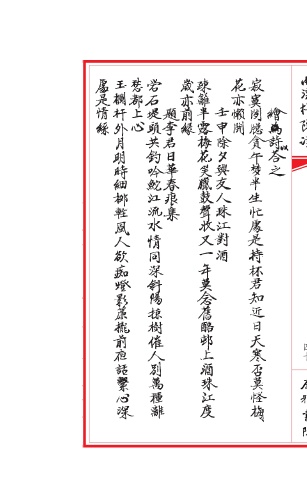 繪馬詩以答之
寂寞閑窗貪午夢半生忙處是持杯君知近日天寒否莫怪梅
花亦懶開
壬申除夕與友人珠江對酒
疎籬半露梅花笑臘鼓聲收又一年莫念舊醅鄉上酒珠江度
歲亦前緣
題李君日華春痕集
岩石堤頭共釣吟鮀江流水情同深斜陽掠樹催人別萬種離
愁都上心
玉欄杆外月明時細柳輕風人欲痴燈影簾攏前夜話繫心深
處是情絲